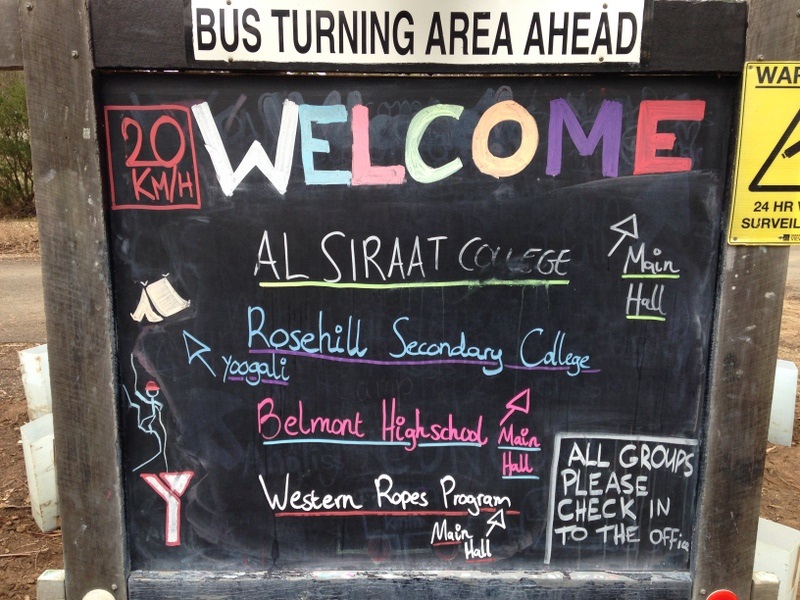 BUS TURNING AREA AHEAD
20
KM/H
WELCOME
AL SIRAAT COLLEGE
Main
Hall
Rosehill Secondary College
Yoogali
Belmont Highschool
Main
Hall
Western Ropes Program
Main
Hall
Y
ALL GROUPS
PLEASE
CHECK IN
TO THE
24 HR